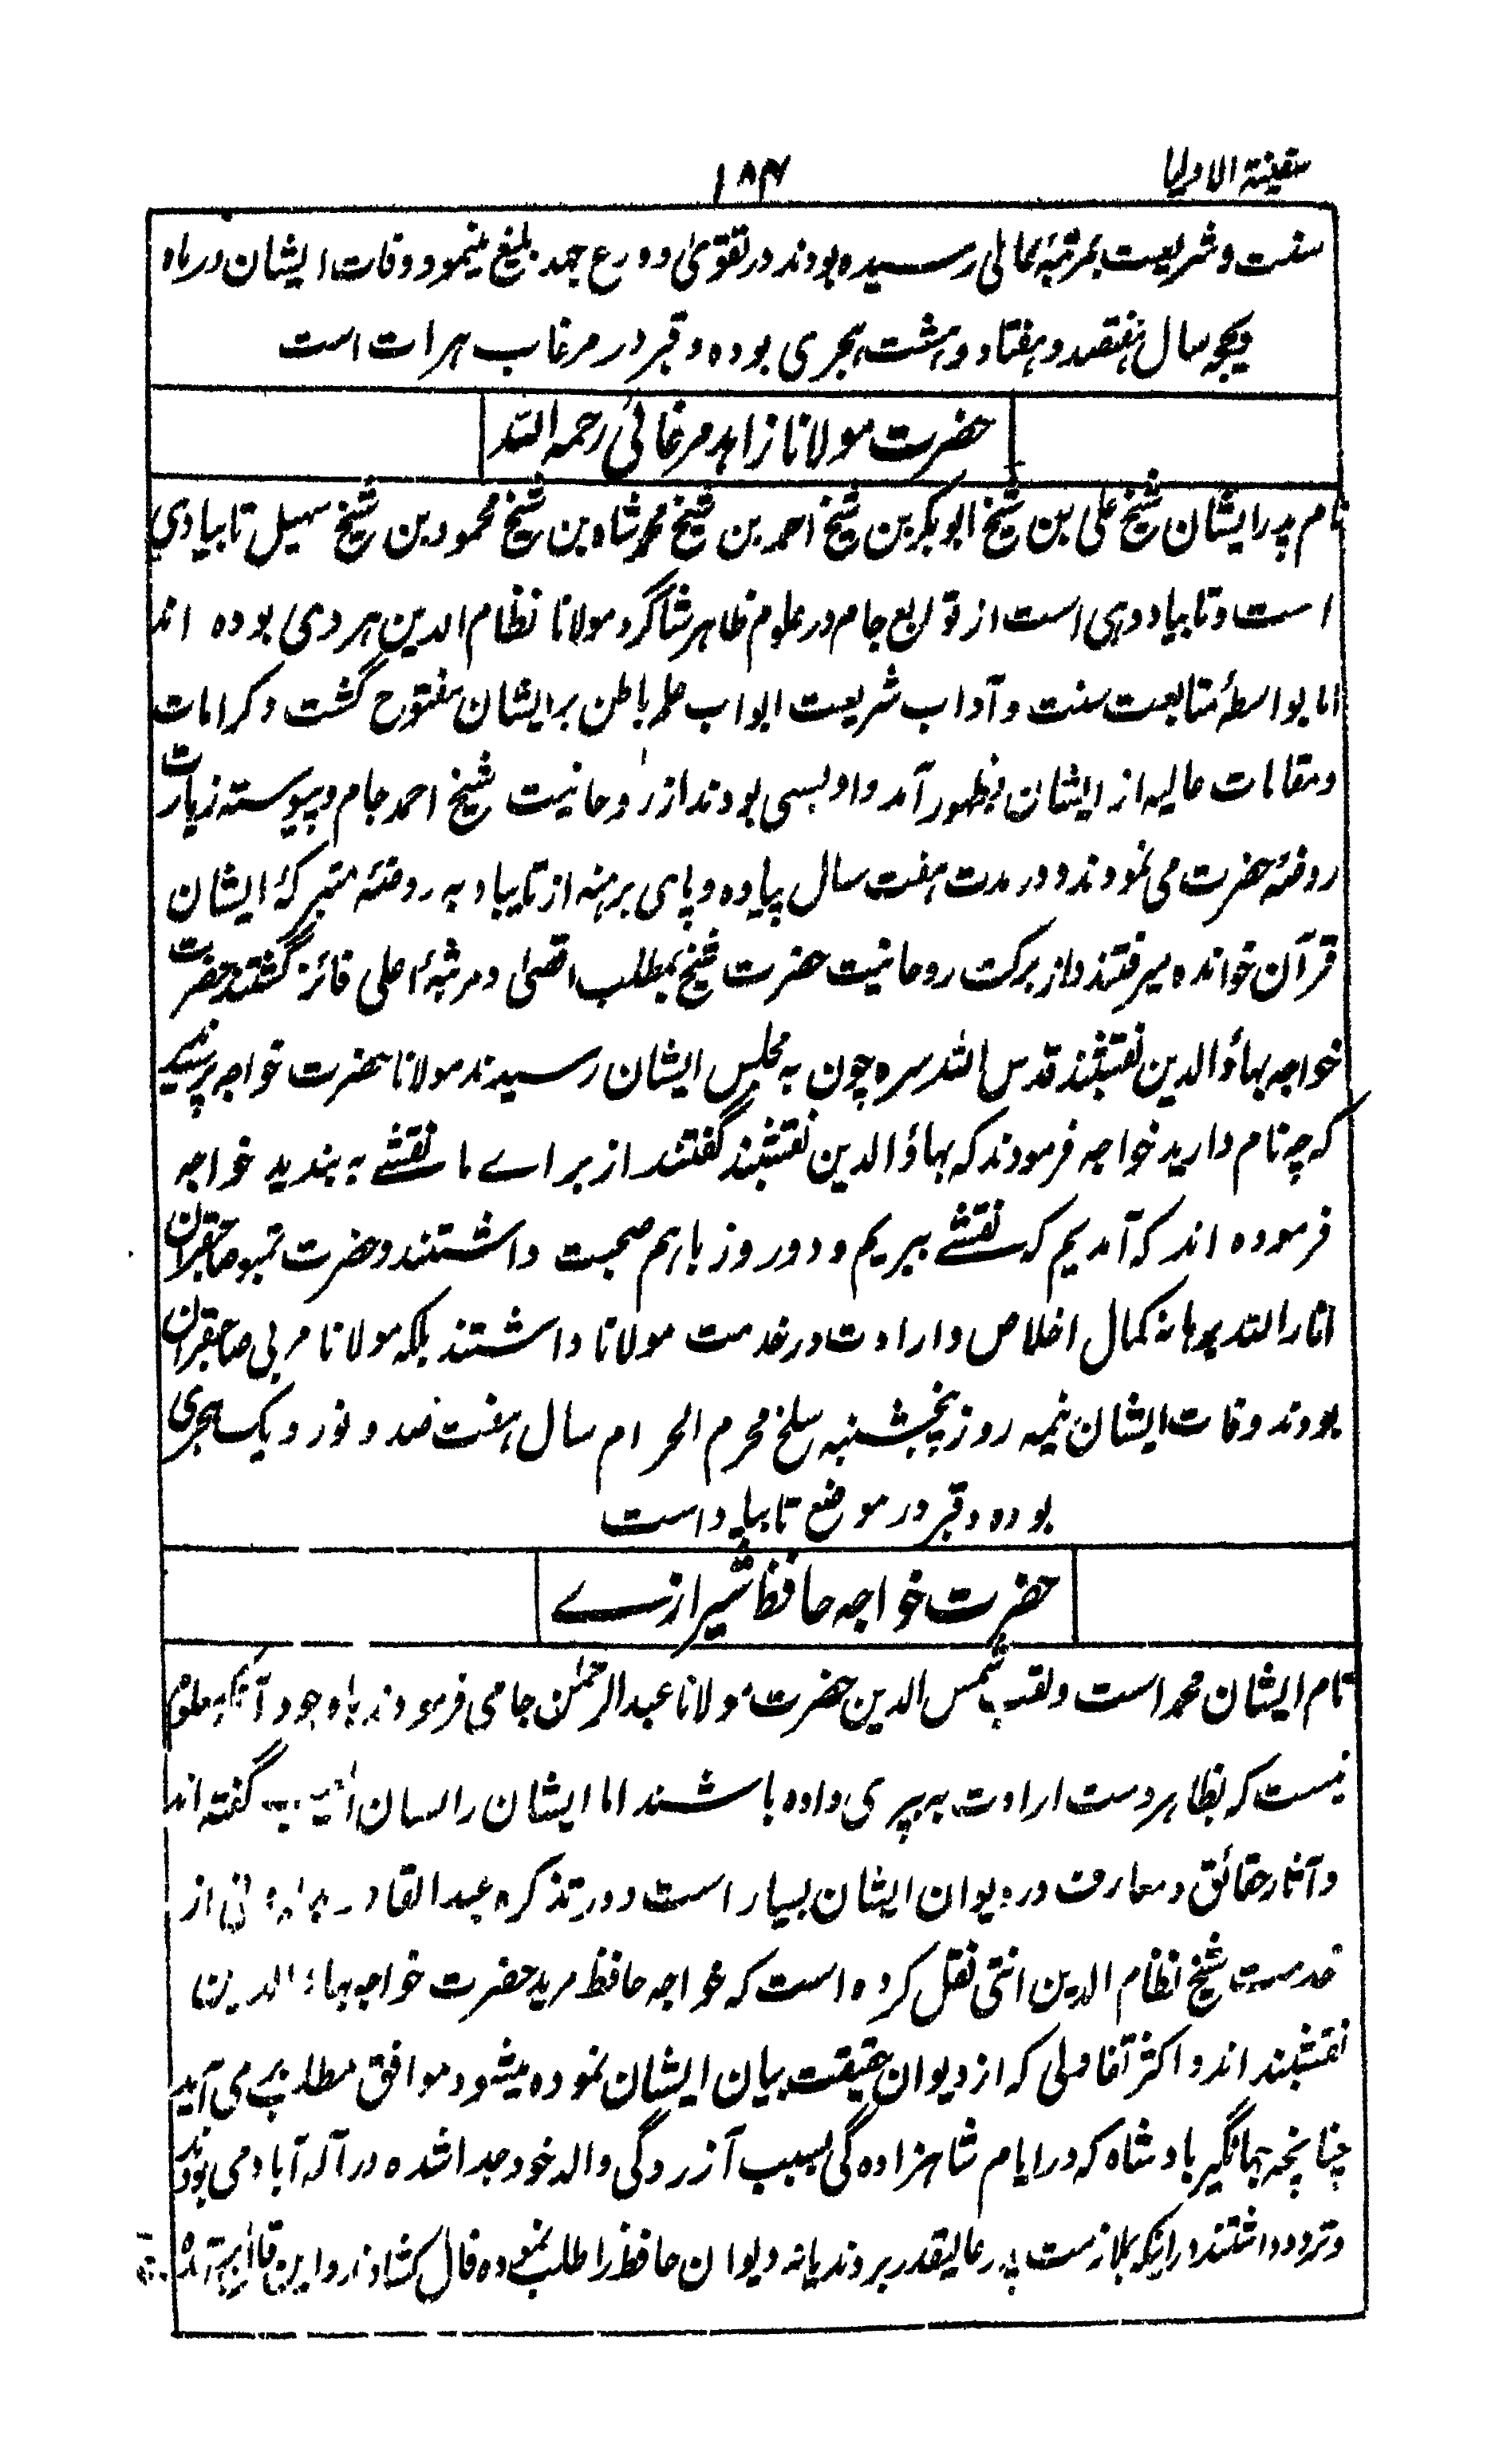 سفینۃ الاولیا
۱۸۴
سنت و شریعت بمرتبۂ عالی رسیده بودند در تقویٰ و ورع جهد بلیغ مینمود وفات ایشان در ماه
ذیحجہ سال هفتصد و هفتاد و هشت هجری بوده و قبر در مرغاب هرات است
حضرت مولانا زاهد مرغابی رحمہ اللہ
نام پدر ایشان شیخ علی بن شیخ ابو بکر بن شیخ احمد بن شیخ محمد شاه بن شیخ محمود بن شیخ سهیل تابیادی
است و تابیاد دهی است از توابع جام در علوم ظاهر شاگرد مولانا نظام الدین هروی بوده اند
اما بواسطۂ متابعت سنت و آداب شریعت ابواب علم باطن بر ایشان مفتوح گشت و کرامات
و مقامات عالیہ از ایشان بظهور آمد و اویسی بودند از روحانیت شیخ احمد جام و پیوسته زیارت
روضۂ حضرت می نمودند و در مدت هفت سال پیاده و پای برهنه از تایباد به روضۂ متبرکۂ ایشان
قرآن خوانده میرفتند و از برکت روحانیت حضرت شیخ بمطلب اقصیٰ و مرتبۂ اعلی فائز گشتند حضرت
خواجه بهاؤ الدین نقشبند قدس اللہ سره چون به مجلس ایشان رسیدند مولانا بحضرت خواجه پرسیدند
که چه نام دارید خواجه فرمودند که بهاؤ الدین نقشبند گفتند از براے ما نقشے به بندید خواجه
فرموده اند که آمدیم که نقشے ببریم و دو روز باهم صحبت داشتند و حضرت تیمور صاحبقران
انار اللہ برهانه کمال اخلاص و ارادت در خدمت مولانا داشتند بلکه مولانا مربی صاحبقران
بودند وفات ایشان نیمه روز پنجشنبه سلخ محرم الحرام سال هفت صد و نود و یک هجری
بوده و قبر در موضع تابیاد است
حضرت خواجه حافظ شیرازے
نام ایشان محمد است و لقب شمس الدین حضرت مولانا عبد الرحمٰن جامی فرمودند باوجود آنکه معلوم
نیست که بظاهر دست ارادت به پیری داده باشند اما ایشان را لسان الغیب گفته اند
و آثار حقائق و معارف در دیوان ایشان بسیار است و در تذکره عبد القادر بدایونی از
خدمت شیخ نظام الدین انتی نقل کرده است که خواجه حافظ مرید حضرت خواجه بهاء الدین
نقشبند اند و اکثر تفاولی که از دیوان حقیقت بیان ایشان نموده میشود موافق مطلب می آید
چنانچه جهانگیر بادشاه که در ایام شاهزاده گی بسبب آزردگی والد خود جدا شده در آله آباد می بودند
و تردد داشتند در اینکه بملازمت پدر عالیقدر بروند یا نه دیوان حافظ را طلب نموده فال کشادند و این